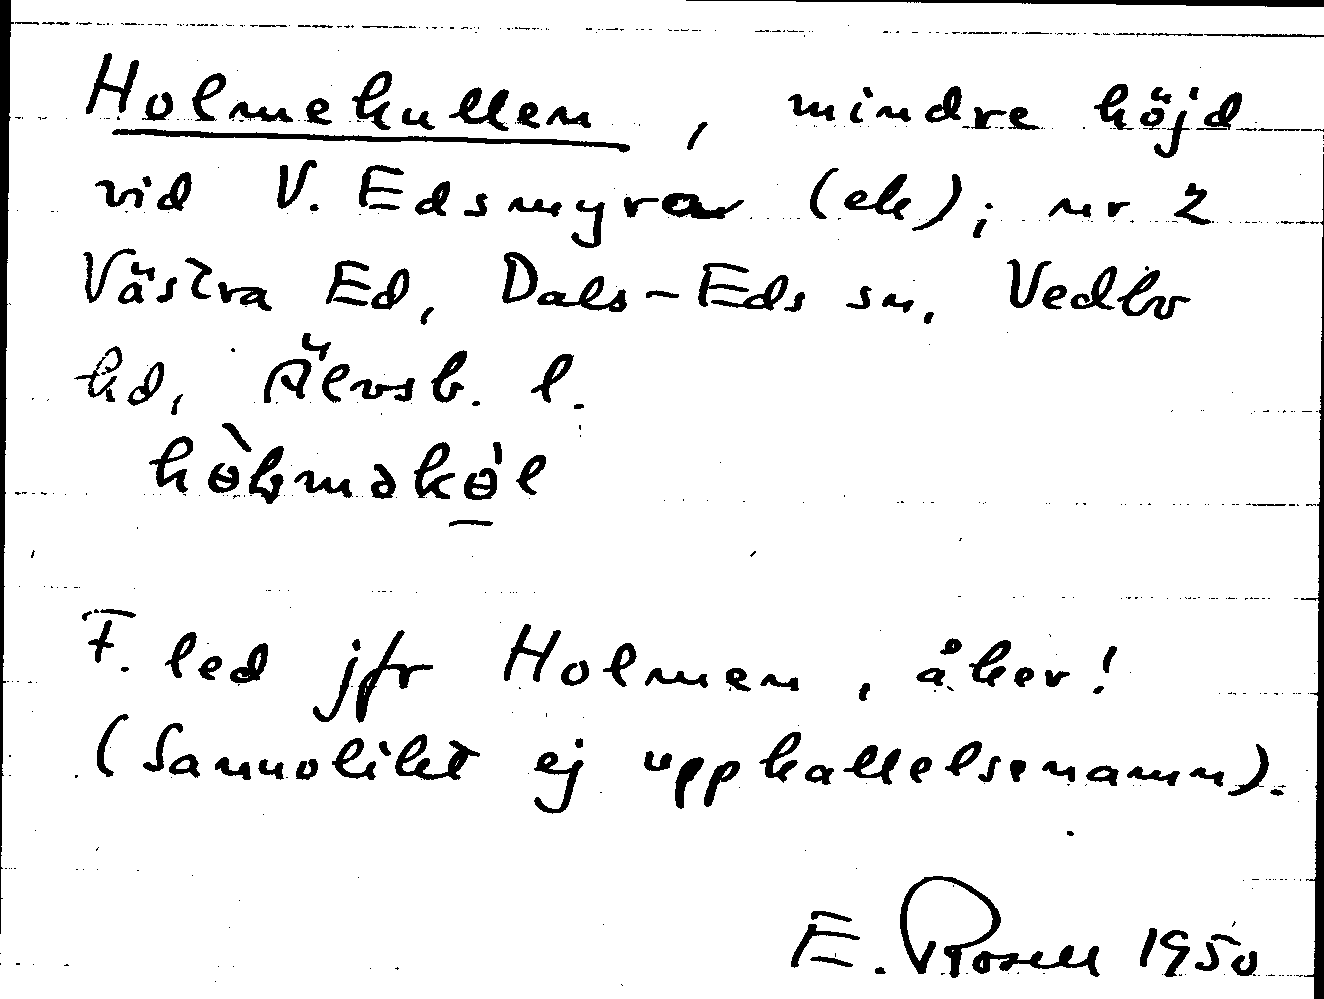 Holmekullen, mindre höjd
vid V. Edsmyrar (ek); nr 2
Västra Ed, Dals-Eds sn, Vedbo
hd, Älvsb. l.
F. led jfr Holmen, åker!
(Sannolikt ej uppkallelsenamn).
E. Rosell 1950